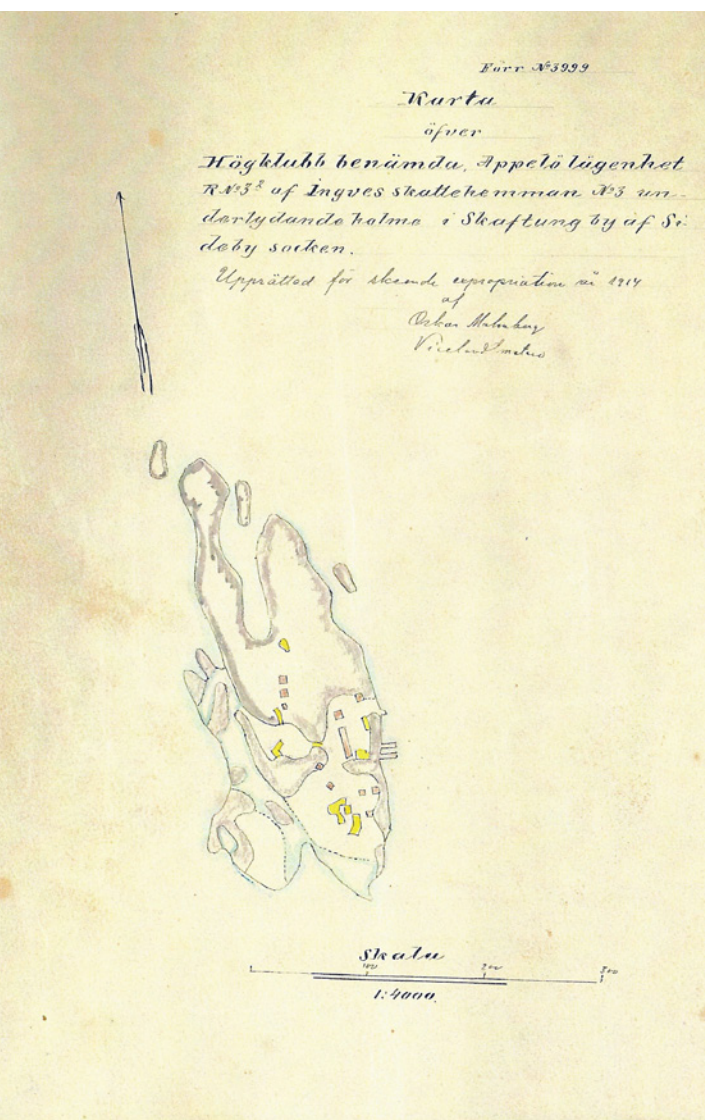 Förr №3999
Karta
öfver
Högklubb benämda, Appelö lägenhet
R №3² af Ingves skattehemman №3 un-
derlydande holme i Skaftung by af Si-
deby socken.
Upprättad för skeende expropriation år 1914
af
Oskar Malmberg
Skala
100 200 300
1:4000.